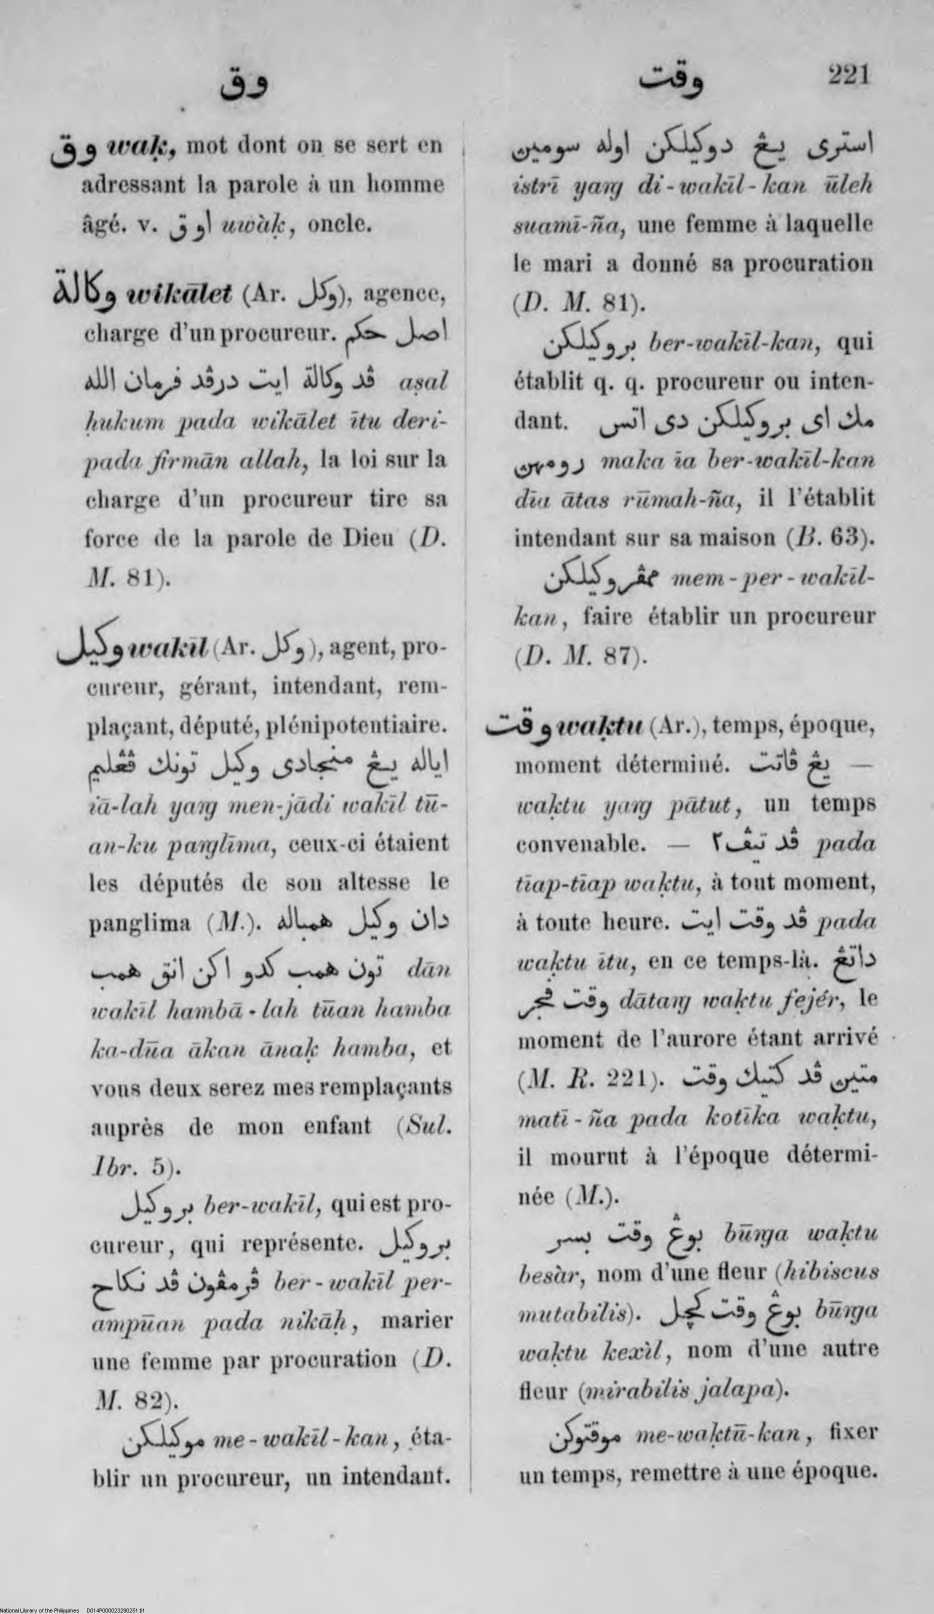 وق
وقت
221
وق waḳ, mot dont on se sert en
adressant la parole à un homme
âgé. v. اوق uwàḳ, oncle.
وكالة wikālet (Ar. وكل), agence,
charge d'un procureur. اصل حكم
ڤد وكالة ايت درڤد فرمان الله aṣal
ḥukum pada wikālet ītu deri-
pada firmān allah, la loi sur la
charge d'un procureur tire sa
force de la parole de Dieu (D.
M. 81).
وكيل wakīl (Ar. وكل), agent, pro-
cureur, gérant, intendant, rem-
plaçant, député, plénipotentiaire.
اياله يڠ منجادى وكيل تونك ڤڠليم
īā-lah yaꞑg men-jādi wakīl tū-
an-ku paꞑglīma, ceux-ci étaient
les députés de son altesse le
panglima (M.). دان وكيل همباله
تون همب كدو اكن انق همب dān
wakīl hambā-lah tūan hamba
ka-dūa ākan ānaḳ hamba, et
vous deux serez mes remplaçants
auprès de mon enfant (Sul.
Ibr. 5).
بروكيل ber-wakīl, qui est pro-
cureur, qui représente. بروكيل
ڤرمڤون ڤد نكاح ber-wakīl per-
ampūan pada nikāḥ, marier
une femme par procuration (D.
M. 82).
موكيلكن me-wakīl-kan, éta-
blir un procureur, un intendant.
استرى يڠ دوكيلكن اوله سومين
istrī yaꞑg di-wakīl-kan ūleh
suamī-ña, une femme à laquelle
le mari a donné sa procuration
(D. M. 81).
بروكيلكن ber-wakīl-kan, qui
établit q. q. procureur ou inten-
dant. مك اى بروكيلكن دى اتس
رومهن maka īa ber-wakīl-kan
dīa ātas rūmah-ña, il l'établit
intendant sur sa maison (B. 63).
ممڤروكيلكن mem-per-wakīl-
kan, faire établir un procureur
(D. M. 87).
وقت waḳtu (Ar.), temps, époque,
moment déterminé. يڠ ڤاتت —
waḳtu yaꞑg pātut, un temps
convenable. — ڤد تيڤ٢ pada
tīap-tīap waḳtu, à tout moment,
à toute heure. ڤد وقت ايت pada
waḳtu ītu, en ce temps-là. داتڠ
وقت فجر dātaꞑg waḳtu fejér, le
moment de l'aurore étant arrivé
(M. R. 221). متين ڤد كتيك وقت
matī-ña pada kotīka waḳtu,
il mourut à l'époque détermi-
née (M.).
بوڠ وقت بسر būꞑga waḳtu
besàr, nom d'une fleur (hibiscus
mutabilis). بوڠ وقت كچل būꞑga
waḳtu kexìl, nom d'une autre
fleur (mirabilis jalapa).
موقتوكن me-waḳtū-kan, fixer
un temps, remettre à une époque.
National Library of the Philippines